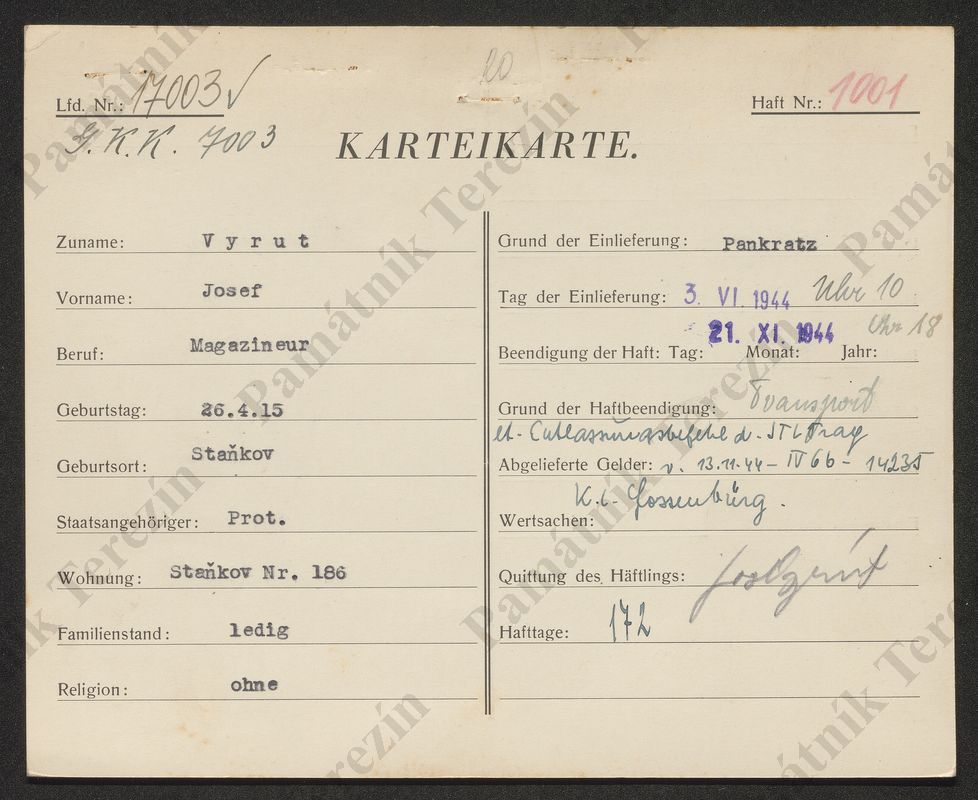 Lfd. Nr.: 17003 √
20
Haft Nr.: 1001
G.K.K. 7003
KARTEIKARTE.
Zuname: Vyrut
Vorname: Josef
Beruf: Magazineur
Geburtstag: 26.4.15
Geburtsort: Staňkov
Staatsangehöriger: Prot.
Wohnung: Staňkov Nr. 186
Familienstand: ledig
Religion: ohne
Grund der Einlieferung: Pankratz
Tag der Einlieferung: 3. VI. 1944 Uhr 10
21. XI. 1944 Uhr 18
Beendigung der Haft: Tag: Monat: Jahr:
Grund der Haftbeendigung: Transport
lt. Entlassungsbefehl d. STL Prag
Abgelieferte Gelder: v. 13.11.44 – IV 6b – 14235
K.L. Flossenbürg.
Wertsachen:
Quittung des Häftlings:
Hafttage: 172
Památník Terezín